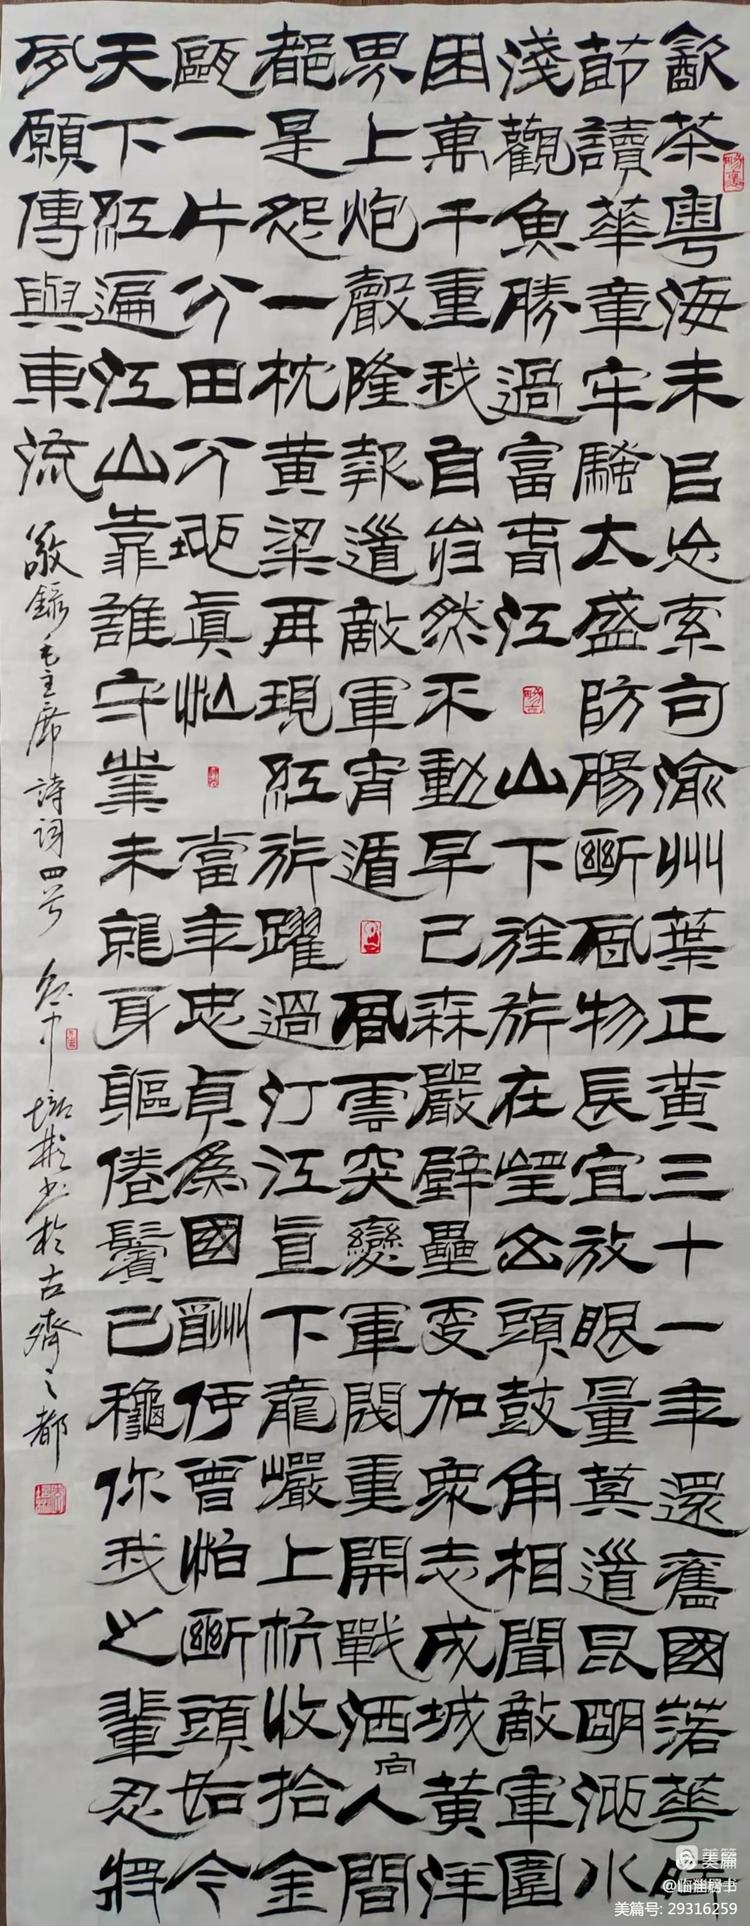 飲茶粵海未忘索句渝州葉正黃三十一年還舊國落華時
節讀華章牢騷太盛防腸斷風物長宜放眼量莫道昆明池水
淺觀魚勝過富春江山下旌旗在望山頭鼓角相聞敵軍圍
困萬千重我自巋然不動早已森嚴壁壘更加眾志成城黃洋
界上炮聲隆報道敵軍宵遁風雲突變軍閥重開戰洒向人間
都是怨一枕黃粱再現紅旗躍過汀江直下龍巖上杭收拾金
甌一片分田分地真忙當年忠貞為國酬何曾怕斷頭如今
天下紅遍江山靠誰守業未就身軀倦鬢已秋你我之輩忍將
夙願傳與東流
敬錄毛主席詩詞四首培彬書於古齊之都
美篇
@临淄榜书
美篇号: 29316259